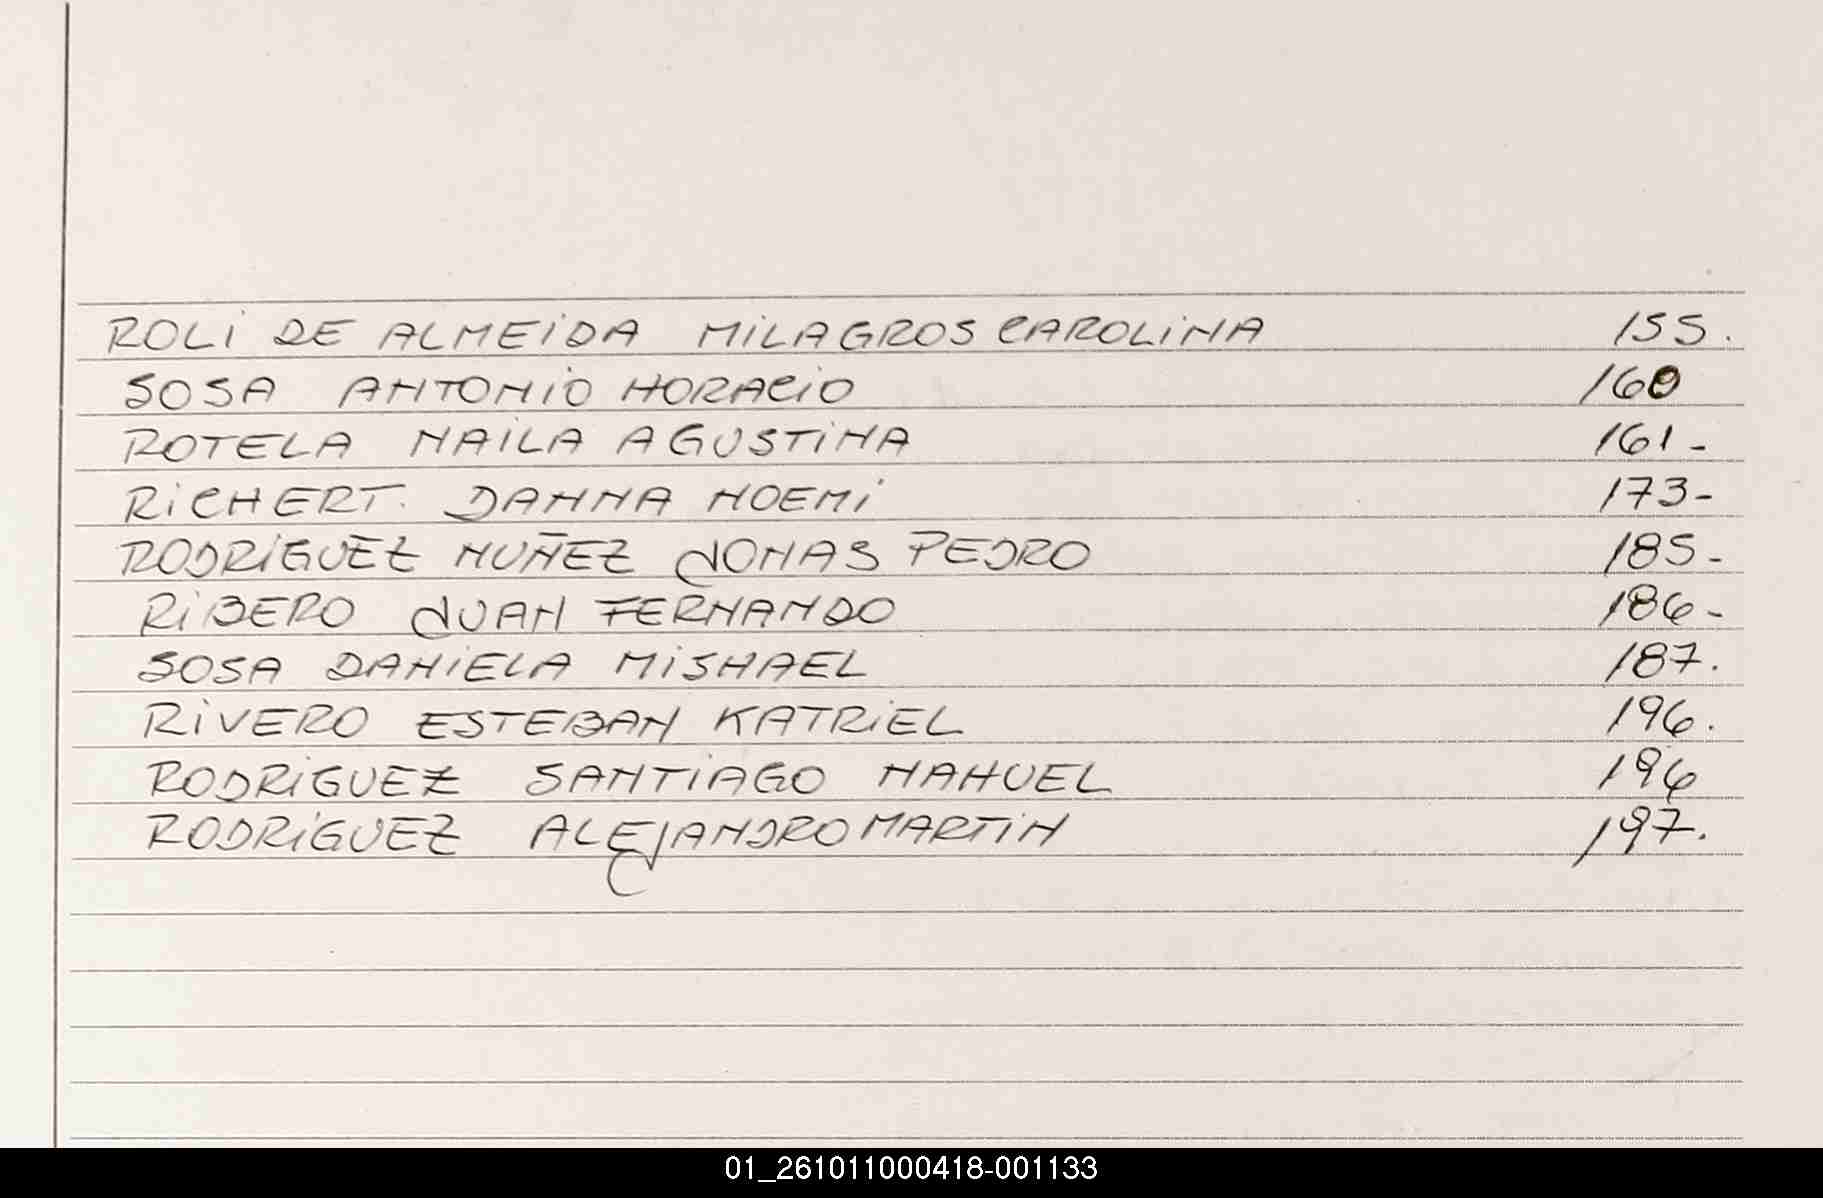 ROLI DE ALMEIDA MILAGROS CAROLINA 155.
SOSA ANTONIO HORACIO 160
ROTELA NAILA AGUSTINA 161-
RICHERT. DANNA NOEMI 173-
RODRIGUEZ NUÑEZ JONAS PEDRO 185-
RIBERO JUAN FERNANDO 186-
SOSA DANIELA MISHAEL 187.
RIVERO ESTEBAN KATRIEL 196.
RODRIGUEZ SANTIAGO NAHUEL 196
RODRIGUEZ ALEJANDRO MARTIN 197.
01_261011000418-001133